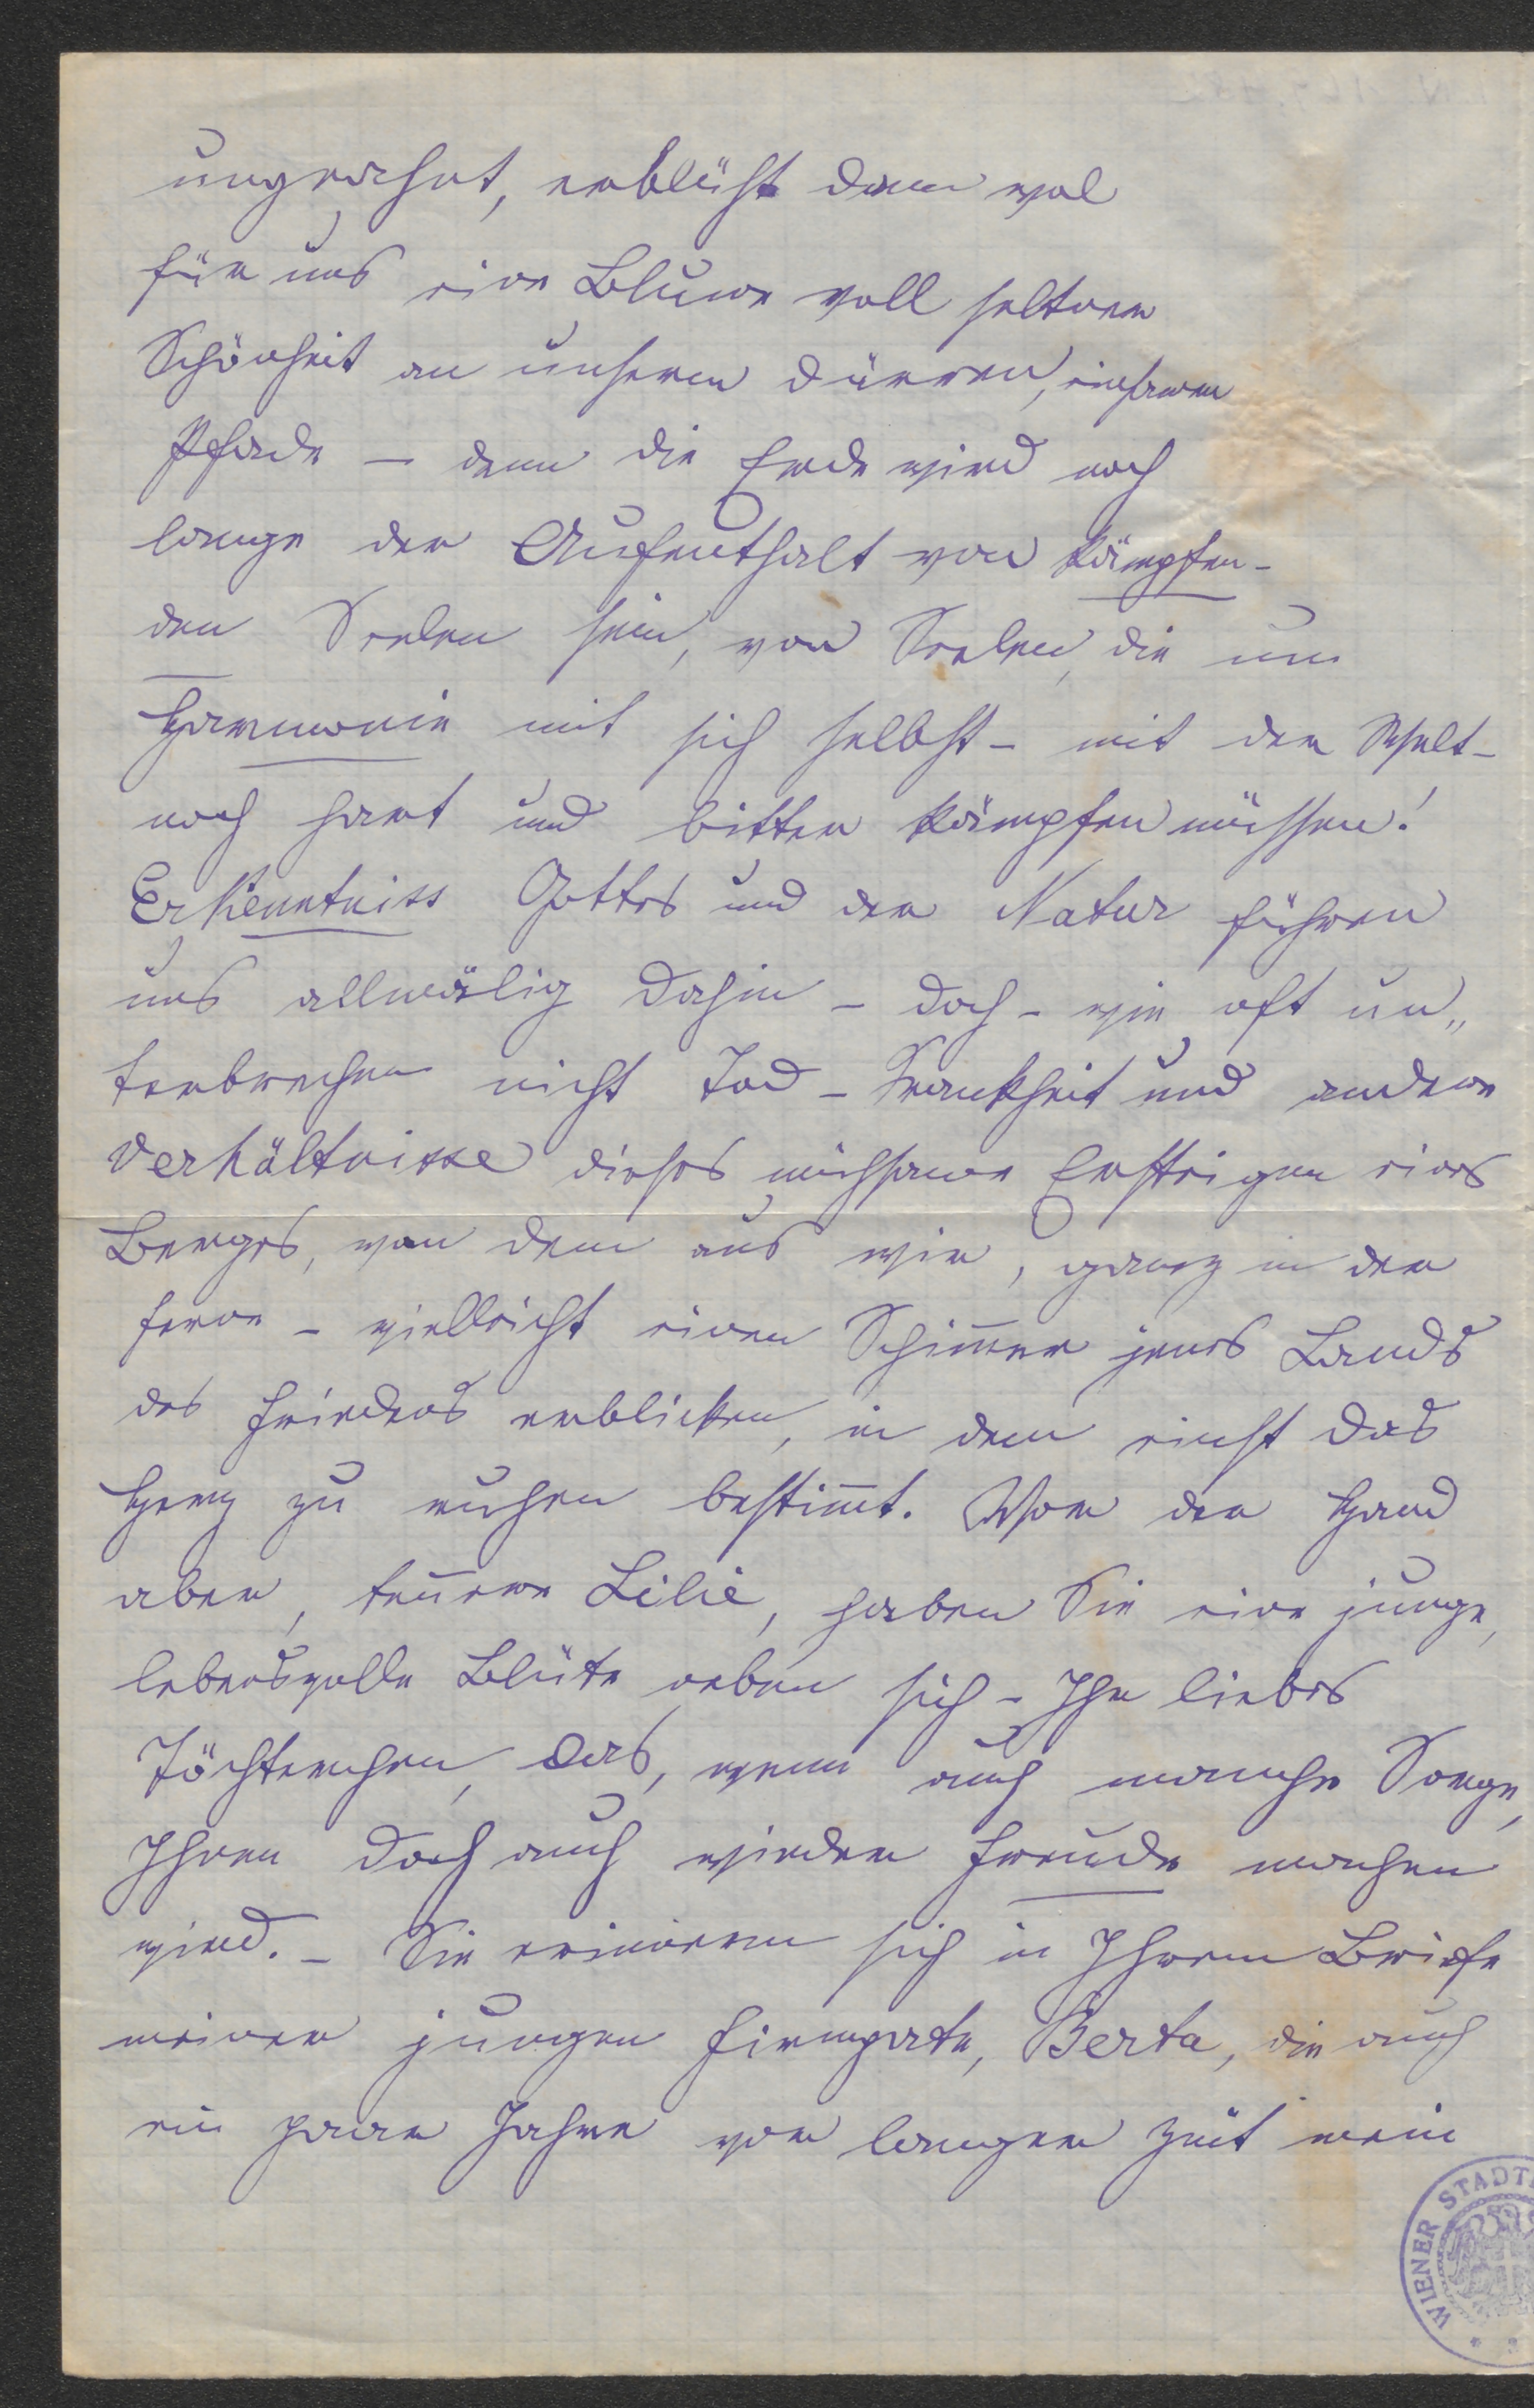 ungeahnt, erblüht dann wol
für uns eine Blume voll seltner
Schönheit an unserem dürren, einsamen
Pfade – denn die Erde wird noch
lange der Aufenthalt von kämpfen-
den Seelen sein, von Seelen, die um
Harmonie mit sich selbst – mit der Welt –
noch hart und bitter kämpfen müssen!
Erkenntniss Gottes und der Natur führen
uns allmälig dahin – doch – wie oft un„
terbrechen nicht Tod – Krankheit und andere
Verhältnisse dieses mühsame Ersteigen eines
Berges, von dem aus wir, ganz in der
Ferne – vielleicht einen Schim̅er jenes Lands
des Friedens erblicken, in dem einst das
Herz zu ruhen bestim̅t. Vor der Hand
aber, teuere Lilie, haben Sie eine junge,
lebensvolle Blüte neben sich – Ihr liebes
Töchterchen, das, wenn auch manche Sorge,
Ihnen doch auch wieder Freude machen
wird. – Sie erinnern sich in Ihrem Briefe
meiner jungen Firmpate, Berta, die auch
ein paar Jahre vor langer Zeit mein
WIENER STADT